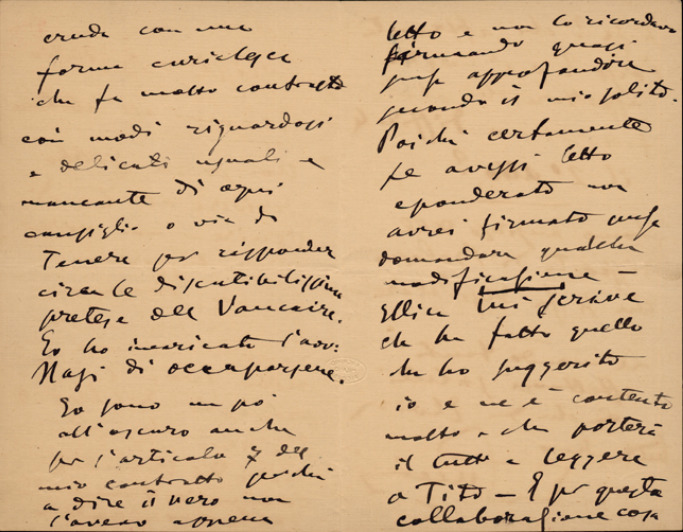 cruda con una
forma
che fa molto contrasto
coi modi riguardosi
e delicati usuali e
mancante di ogni
consiglio o via da
Tenere per rispondere
circa le discutibilissime
pretese del Vaucaire.
Io ho incaricato l'avv:
Nasi di occuparsene.
Io sono un po'
all'oscuro anche
per l'articolo 7 del
mio contratto perchè
a dire il vero non
l'avevo appena
letto e non lo ricordavo
firmando quasi
senza approfondire
secondo il mio solito.
Poichè certamente
se avessi letto
e ponderato non
avrei firmato senza
domandare qualche
modificazione —
Illica mi scrive
che ha fatto quello
che ho suggerito
io e ne è contento
molto e che porterà
il tutto a leggere
a Tito — E per questa
collaborazione cosa